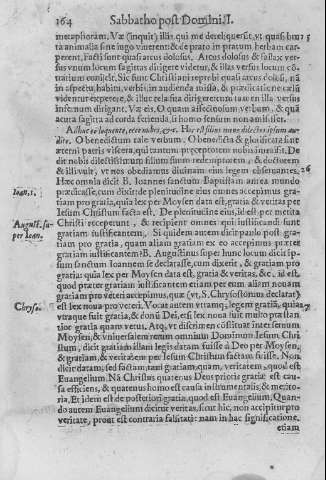 164 Sabbatho post Domini. I.
metaphoram, Væ (inquit) illis, qui me dereliquerunt, vt quasi bru
ta animalia sine iugo viuerent: & de prato in pratum herbam car
perent. Facti sunt quasi arcus dolosus. Arcus dolosus & fallax ver-
sus vnum locum sagittas dirigere videtur, & illas versus locum cõ
trarium coniicit. Sic sunt Christiani reprobi quasi arcus dolosi, nã
in aspectu, habitu, verbis, in audienda missa, & prædicatione cælũ
videntur expetere, & illuc tela sua dirigere, cum tamen illa versus
infernum dirigant. Væ eis. O quam
acuta sagitta ad corda ferienda, si homo sensum non amisisset.
Adhuc eo loquente, ecce nubes, &c. Hic est filius meus dilectus ipsum au-
dite. O benedictum tale verbum. O benedicta & glorificata sint
æterni patris viscera, qui tantum præceptorem nobis inuisit. De
dit nobis dilectissimum filium suum redemptorem, & doctorem
& illi vult, vt nos obediamus diuinam eius legem obseruantes. 26
Hæc omnia dicit B. Ioannes
Ioan. 1. prædicasse, cum dixit: de plenitudine eius omnes accepimus gra-
tiam pro gratia, quia lex per Moysen data est, gratia & veritas per
Iesum Christum facta est. De plenitudine eius, id est per merita
August. su- Christi acceperunt, & recipient omnes qui iustificandi sunt
per Ioan. gratiam iustificantem. Si quidem autem dicit paulo post: gra-
tiam pro gratia, quam aliam gratiam ex eo accepimus præter
gratiam iustificantem? B. Augustinus super hunc locum dicit ip-
sum sanctum Ioannem se declarasse, cum dixerit, & gratiam pro
gratia: quia lex per Moysen data est, gratia & veritas, &c. id est,
quod præter gratiam iustificantem etiam per eum aliam nouam
gratiam pro vetere accepimus, quæ (vt, S. Chrysostomus declarat)
Chryso. est lex noua pro veteri. Vocat autem vtramq; legem gratiã, quia 27
vtraque fuit gratia, & donũ Dei, etsi lex noua fuit multo præstan-
tior gratia quam vetus. Atq; vt discrimen cõstituat inter seruum
Moysen, & vniuersalem rerum omnium Dominum Iesum Chri
stum, dicit gratiam illam legis datam fuisse à Deo per Moysen,
& gratiam, & veritatem per Iesum Christum factam fuisse. Non
dicit datam, sed factam, tam gratiam, quam, veritatem, quod est
Euangelium. Nã Christus quatenus Deus prioris gratiæ est cau-
sa efficiens, & quatenus homo est causa instrumentalis, & merito-
ria. Et idem est de posteriori gratia, quod est Euangelium. Quan-
do autem Euangelium dicitur veritas, sicut hic, non accipitur pro
veritate, prout est contraria falsitati: nam in hac significatione,
etiam